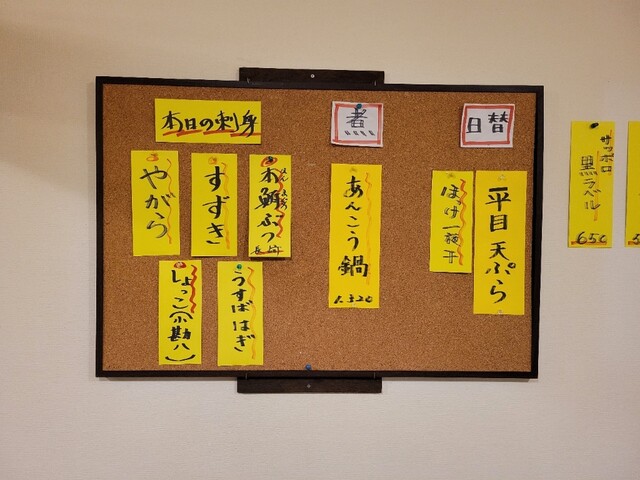 本日の刺身
やがら
すずき
本鮪ぶつ
しょっこ(小勘八)
うすばはぎ
煮
あんこう鍋
1.320
日替
ほっけ一夜干
平目天ぷら
サッポロ
黒ラベル
650